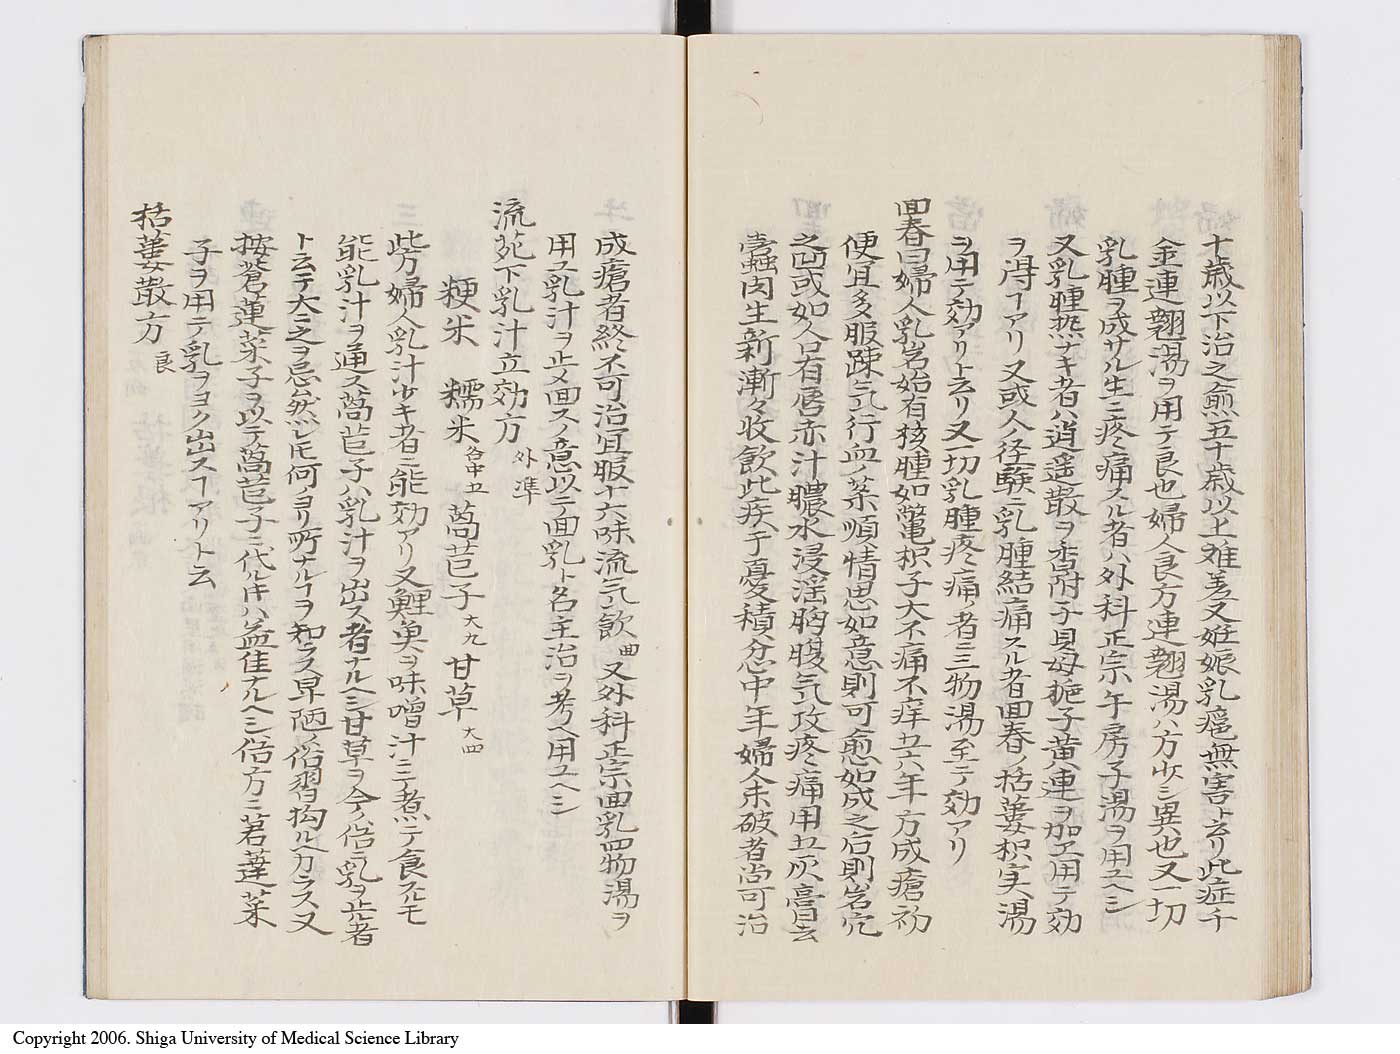 十歳以下治之愈五十歳以上难差又妊娠乳癰無害ト云リ此症千
金連翹湯ヲ用テ良也婦人良方連翹湯ハ方少シ異也又一切
乳腫ヲ成サル生ニ疼痛スル者ハ外科正宗午房子湯ヲ用ユヘシ
又乳腫熱ナキ者ハ逍遥散ヲ香附子貝母梔子黄連ヲ加エ用テ効
ヲ得ヿアリ又或人ノ径験ニ乳腫結痛スル者回春ノ栝蔞枳実湯
ヲ用テ効アリト云リ又一切乳腫疼痛ノ者三物湯至テ効アリ
回春曰婦人乳岩始有核腫如鼈棋子大不痛不痒五六年方成瘡初
便宜多服疎气行血ノ薬順情思如意則可愈如成之后則岩穴
之凹或如人口有唇赤汁膿水浸淫胸腹气攻疼痛用五灰膏去
蠧肉生新漸々收歛此疾于憂積忿中年婦人未破者尚可治
成瘡者終不可治宜服十六味流气飲 曲 又外科正宗回乳四物湯ヲ
用エ乳汁ヲ止メ回スノ意以テ回乳ト名主治ヲ考ヘ用ユヘシ
流苑下乳汁立効方 外準
粳米 糯米 各中五 萵苣子 大九 甘草 大四
此方婦人乳汁少キ者ニ能効アリ又鯉魚ヲ味噌汁ニテ煮テ食スルモ
能乳汁ヲ通ス萵苣子ハ乳汁ヲ出ス者ナルヘシ甘草ヲ今ノ俗ニ乳ヲ止者
ト云テ大ニ之ヲ忌然レ𪜈何ヨリ所ナルヿヲ知ラス卑陋ノ俗習拘ルヘカラス又
按蒼蓮菜子ヲ以テ萵苣子ニ代ル𪜈ハ益佳ナルヘシ俗方ニ莙薘菜
子ヲ用テ乳ヲヨク出スヿアリト云
栝蔞散方 良
Copyright 2006. Shiga University of Medical Science Library